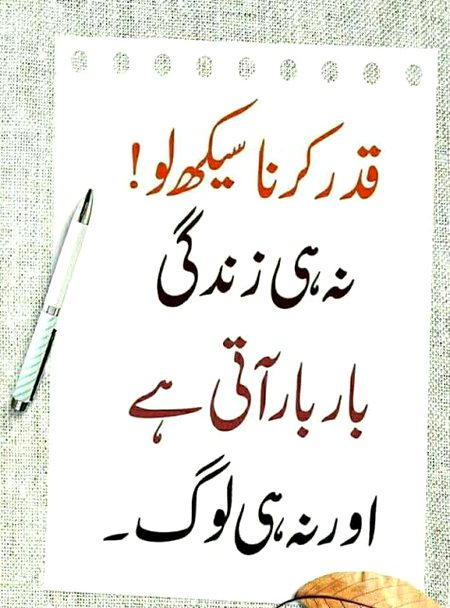 قدر کرنا سیکھ لو!
نہ ہی زندگی
بار بار آتی ہے
اور نہ ہی لوگ۔